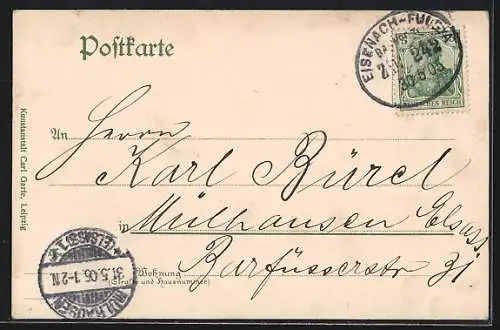 Postkarte
EISENACH-FULDA
BAHNPOST
ZUG 242
30.5.05
DEUTSCHES REICH
An
Herrn
Karl Bürel
in Mülhausen Elsass
Barfüsserstr 31
Wohnung
(Straße und Hausnummer)
Kunstanstalt Carl Garte, Leipzig
*(ELSASS) 1*
31.5.05.1-2N.
MÜLHAUSEN